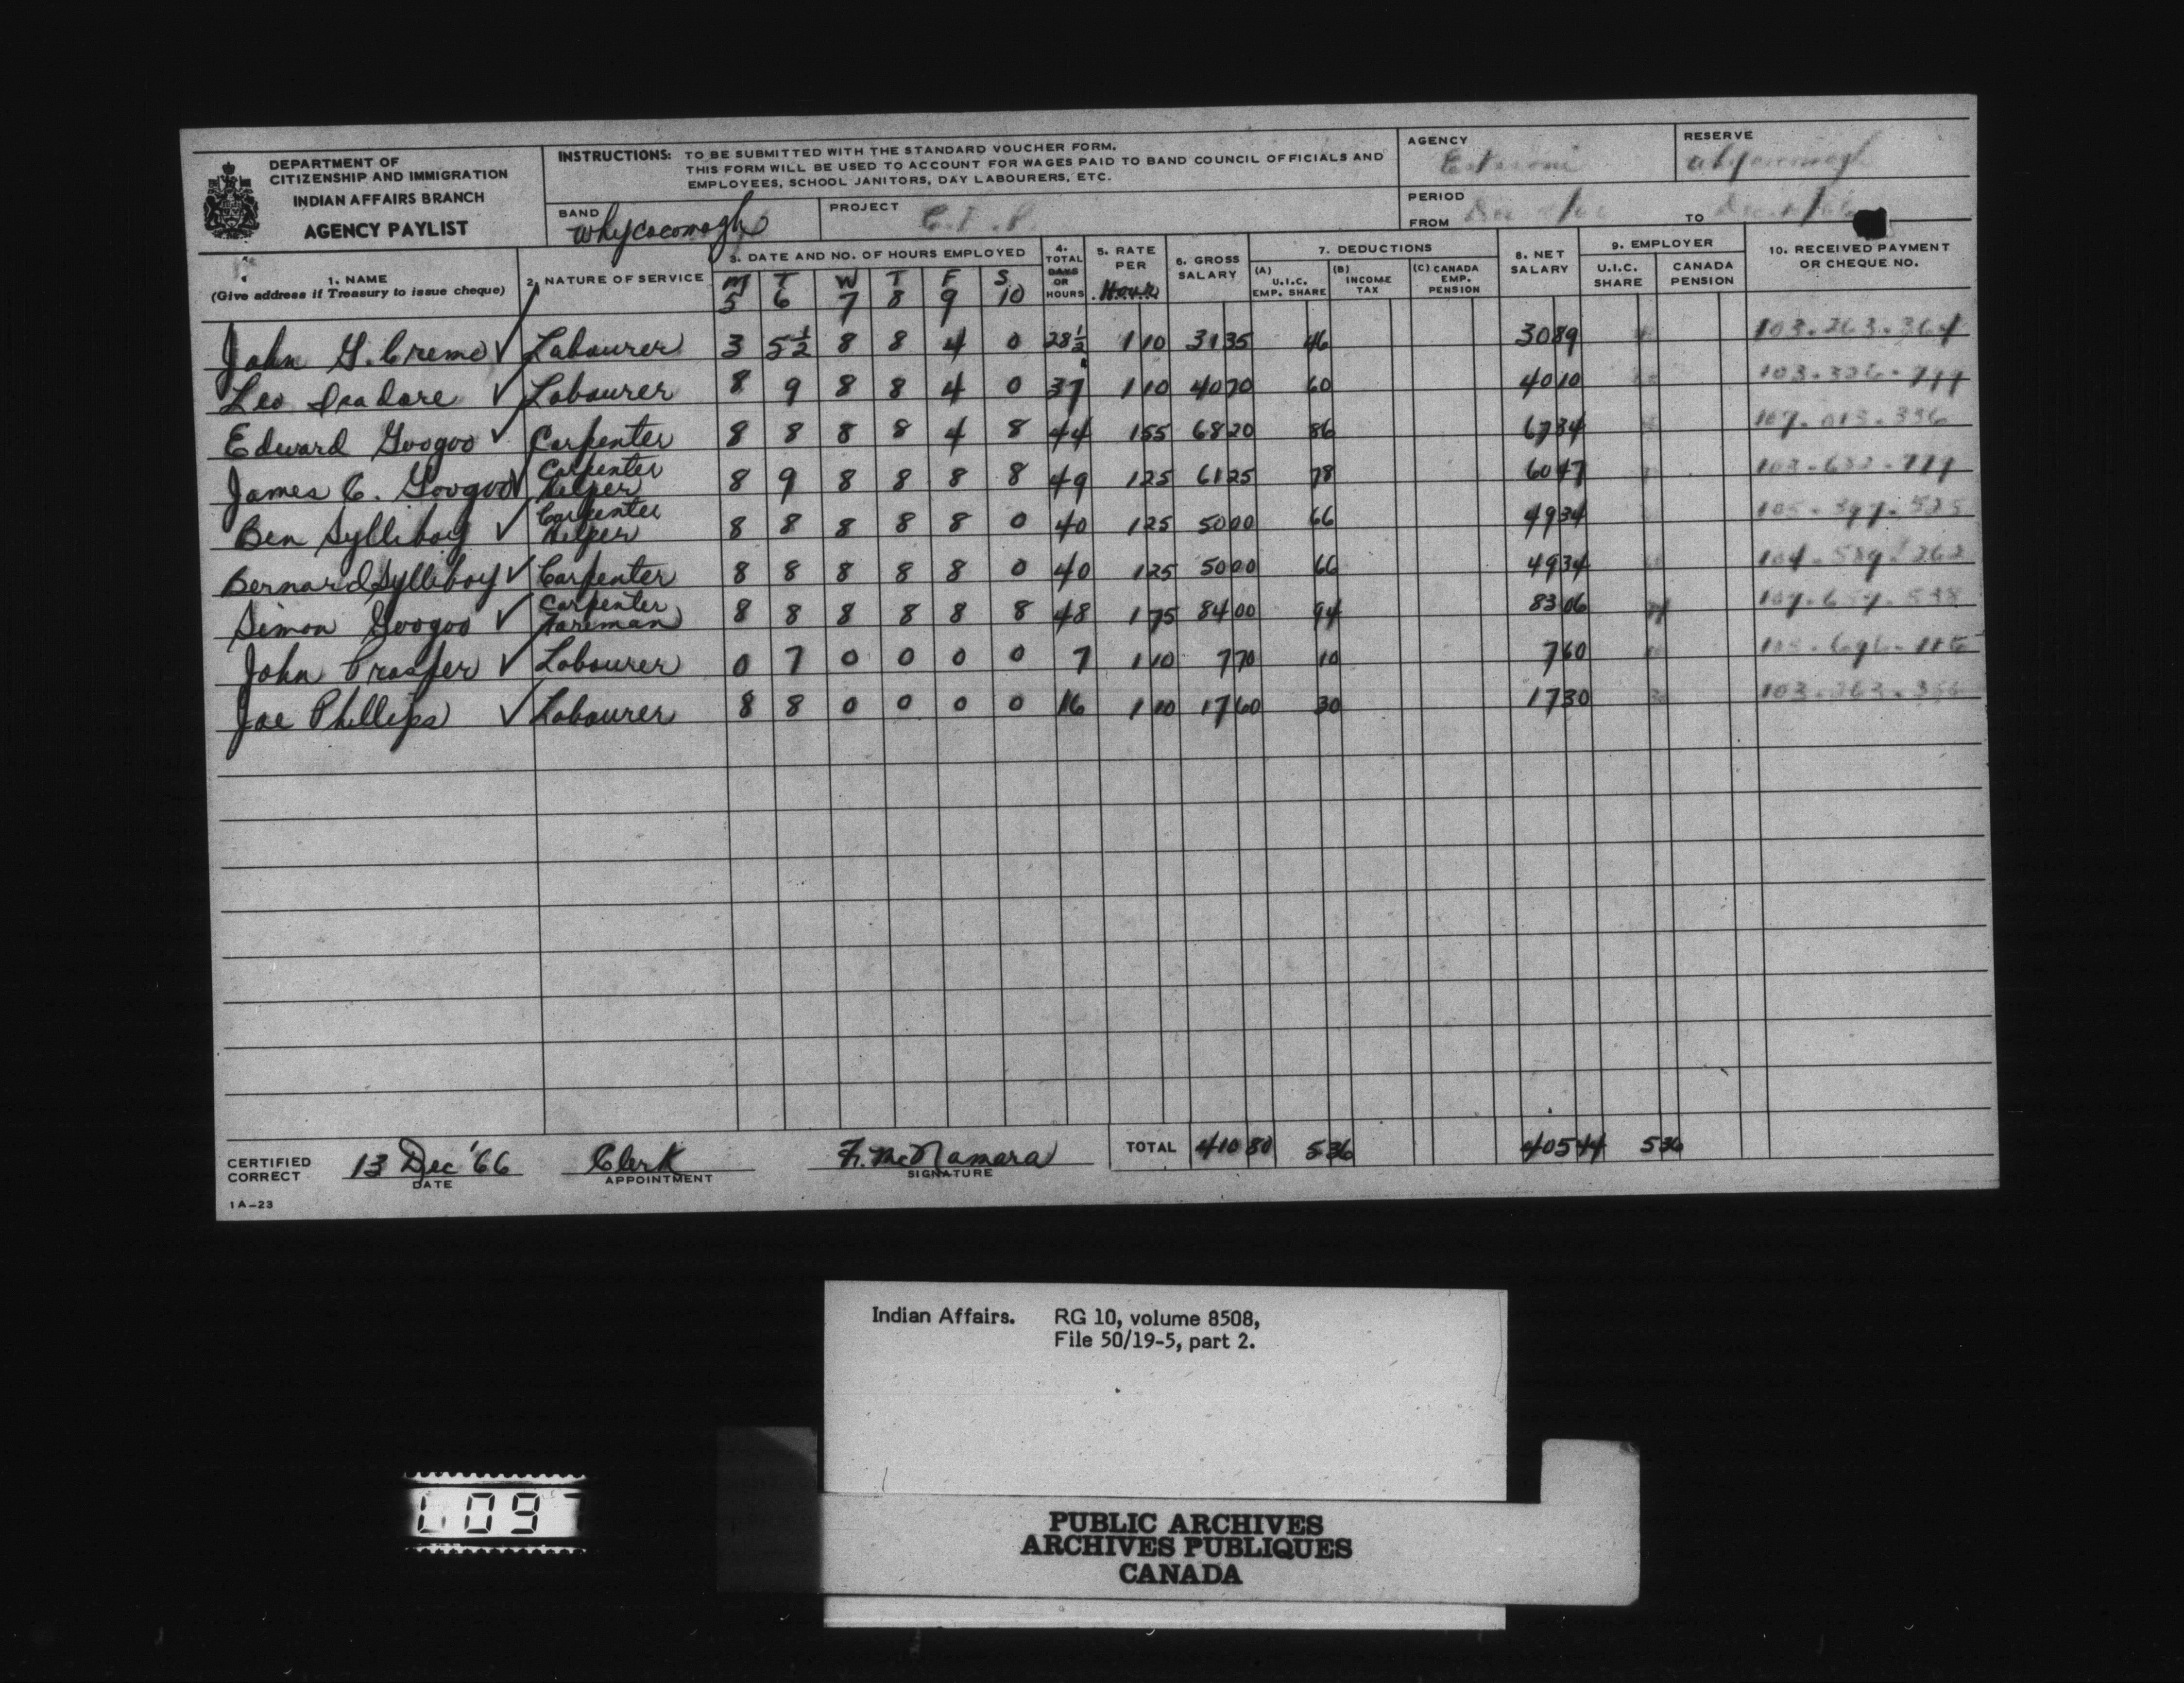 DEPARTMENT OF
CITIZENSHIP AND IMMIGRATION
INDIAN AFFAIRS BRANCH
AGENCY PAYLIST
INSTRUCTIONS: TO BE SUBMITTED WITH THE STANDARD VOUCHER FORM.
THIS FORM WILL BE USED TO ACCOUNT FOR WAGES PAID TO BAND COUNCIL OFFICIALS AND
EMPLOYEES, SCHOOL JANITORS, DAY LABOURERS, ETC.
BAND Whycocomagh
PROJECT
AGENCY Eskasoni
RESERVE Whycocomagh
PERIOD
FROM TO
1. NAME
(Give address if Treasury to issue cheque)
2. NATURE OF SERVICE
3. DATE AND NO. OF HOURS EMPLOYED
M T W T F S
5 6 7 8 9 10
4. TOTAL DAYS OR HOURS
5. RATE PER Hour
6. GROSS SALARY
7. DEDUCTIONS
(A) U.I.C. EMP. SHARE
(B) INCOME TAX
(C) CANADA EMP. PENSION
8. NET SALARY
9. EMPLOYER
U.I.C. SHARE
CANADA PENSION
10. RECEIVED PAYMENT OR CHEQUE NO.
John G. Cremo ✓ Labourer 3 5½ 8 8 4 0 28½ 1 10 31 35 46 30 89
Leo Isadore ✓ Labourer 8 9 8 8 4 0 37 1 10 40 70 60 40 10
Edward Googoo ✓ Carpenter 8 8 8 8 4 8 44 1 55 68 20 86 67 34
James C. Googoo ✓ Carpenter Helper 8 9 8 8 8 8 49 1 25 61 25 78 60 47
Ben Sylliboy ✓ Carpenter Helper 8 8 8 8 8 0 40 1 25 50 00 66 49 34
Bernard Sylliboy ✓ Carpenter 8 8 8 8 8 0 40 1 25 50 00 66 49 34
Simon Googoo ✓ Carpenter Foreman 8 8 8 8 8 8 48 1 75 84 00 94 83 06
John Prosper ✓ Labourer 0 7 0 0 0 0 7 1 10 7 70 10 7 60
Joe Phillips ✓ Labourer 8 8 0 0 0 0 16 1 10 17 60 30 17 30
TOTAL 410 80 5 36 405 44 5 36
CERTIFIED CORRECT 13 Dec '66 Clerk F. McNamara
DATE APPOINTMENT SIGNATURE
1A-23
Indian Affairs. RG 10, volume 8508,
File 50/19-5, part 2.
PUBLIC ARCHIVES
ARCHIVES PUBLIQUES
CANADA